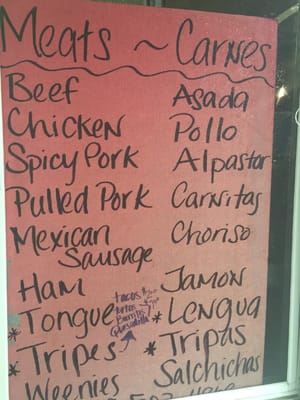 Meats ~ Carnes
Beef Asada
Chicken Pollo
Spicy Pork Alpastor
Pulled Pork Carnitas
Mexican Sausage Choriso
Ham Jamon
tacos
tortas
Burritos
Quesadilla
*Tongue *Lengua
*Tripes *Tripas
Weenies Salchichas